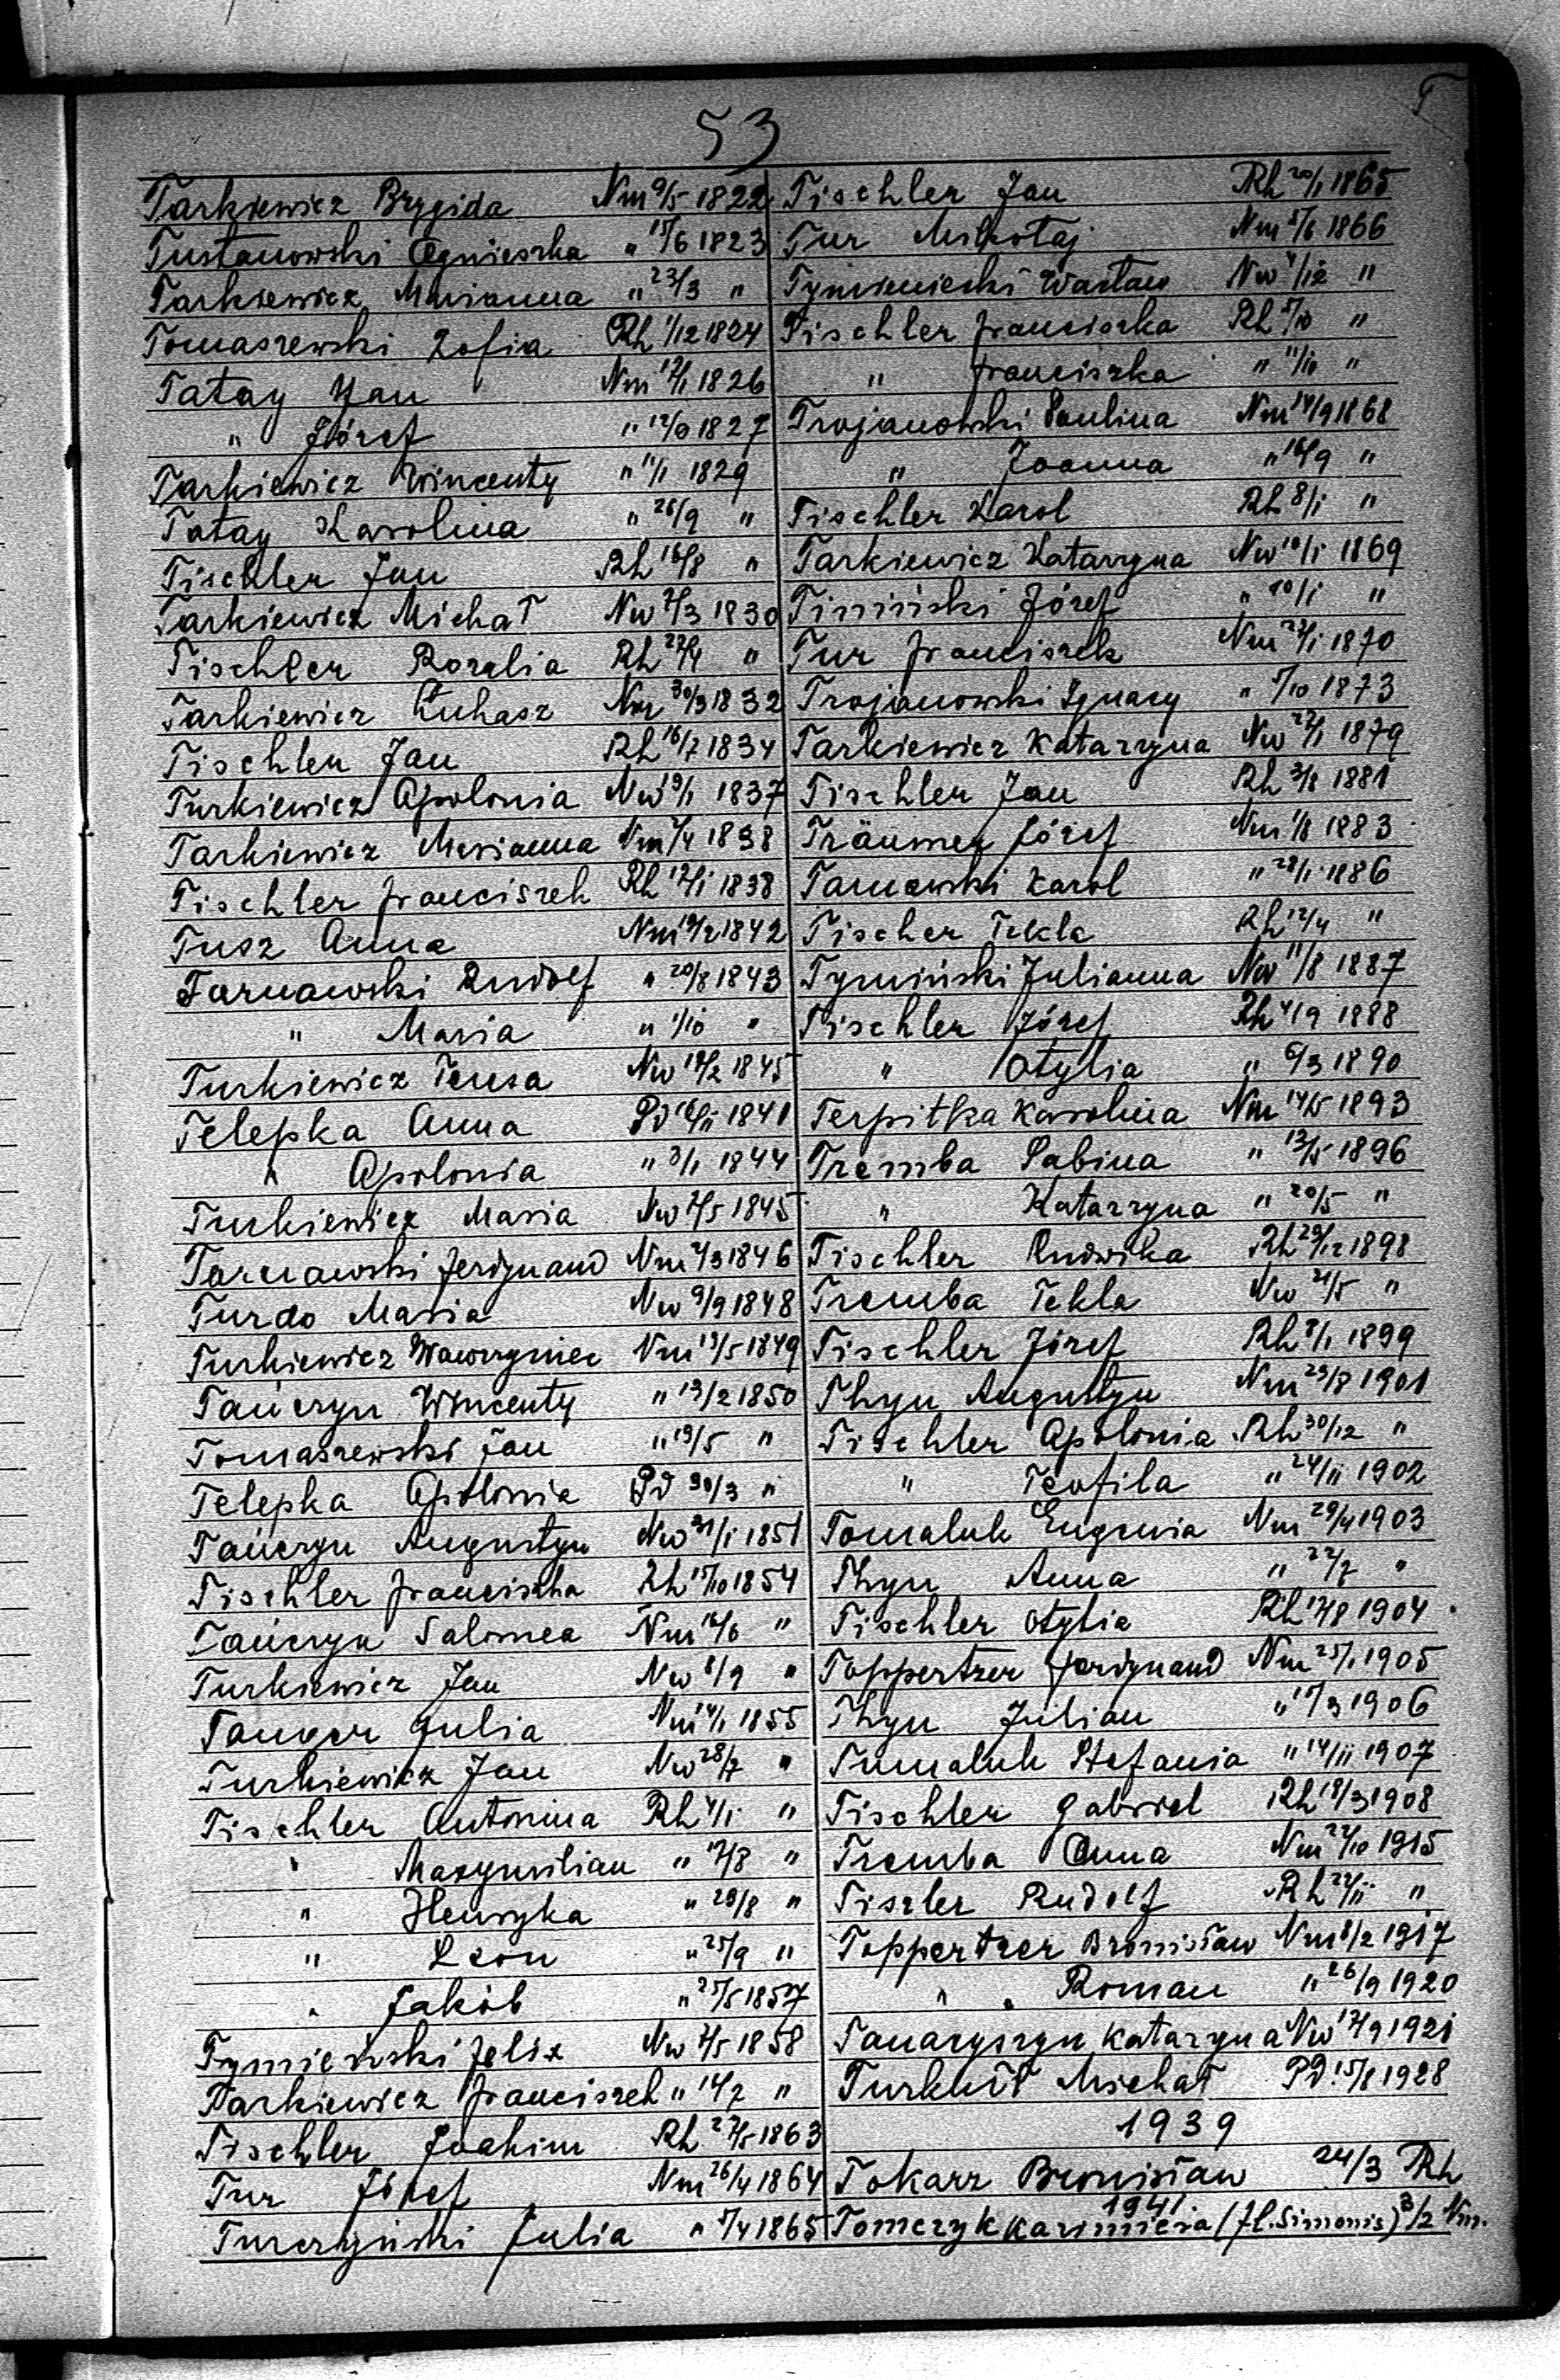 T
53
Tarkiewicz Brygida Nm 9/5 1822
Tustanowski Agnieszka " 15/6 1823
Tarkiewicz Marianna " 23/3 "
Tomaszewski Zofia Rh 1/12 1824
Tatay Jan Nm 1826
" Józef " 1827
Tarkiewicz Wincenty " 11/1 1829
Tatay Karolina " 26/9 "
Tischler Jan Rh 16/8 "
Tarkiewicz Michał Nw 1830
Tischler Rozalia Rh "
Tarkiewicz Łukasz Nm 30/3 1832
Tischler Jan Rh 16/7 1834
Turkiewicz Apolonia Nw 1837
Tarkiewicz Marianna Nm 1838
Tischler Franciszek Rh 1838
Tusz Anna Nm 1842
Tarnawski Rudolf " 20/8 1843
" Maria " 1/10 "
Turkiewicz Teresa Nw 1845
Telepka Anna Pd 1841
" Apolonia " 1844
Turkiewicz Maria Nw 1845
Tarnawski Ferdynand Nm 1846
Turdo Maria Nw 9/9 1848
Turkiewicz Wawrzyniec Nm 13/5 1849
Tańczyn Wincenty " 13/2 1850
Tomaszewski Jan " 19/5 "
Telepka Apolonia Pd 30/3 "
Tańczyn Augustyn Nw 31/1 1851
Tischler Franciszka Rh 15/10 1854
Tańczyn Salomea Nm "
Turkiewicz Jan Nw 8/9 "
Julia Nm 1855
Turkiewicz Jan Nw 28/7 "
Tischler Antonina Rh 4/1 "
" Maxymilian " 17/8 "
" Henryka " 29/8 "
" Leon " 25/9 "
" Jakób " 25/5 1857
Felix Nw 1858
Tarkiewicz Franciszek " 14/7 "
Tischler Joachim Rh 1863
Tur Józef Nm 26/4 1864
Turczyński Julia " 1865
Tischler Jan Rh 20/1 1865
Tur Mikołaj Nm 1866
Tymieniecki Wacław Nw "
Tischler Franciszka Rh "
" Franciszka " 11/10 "
Trojanowski Paulina Nm 14/9 1868
" Joanna " 16/9 "
Tischler Karol Rh 8/1 "
Tarkiewicz Katarzyna Nw 10/1 1869
Timiński Józef " 10/1 "
Tur Franciszek Nm 1870
Trojanowski Ignacy " 1873
Tarkiewicz Katarzyna Nw 1879
Tischler Jan Rh 3/8 1881
Träumer Józef Nm 1/8 1883
Tarnawski Karol " 28/1 1886
Tischer Tekla Rh 12/4 "
Tymiński Julianna Nw 11/8 1887
Tischler Józef Rh 4/9 1888
" Otylia " 6/3 1890
Terpitka Karolina Nm 14/5 1893
Tremba Sabina " 13/5 1896
" Katarzyna " 20/5 "
Tischler Ludwika Rh 29/12 1898
Tremba Tekla Nw 21/5 "
Tischler Józef Rh 1899
Thyn Augustyn Nm 23/8 1901
Tischler Apolonia Rh 30/12 "
" Teofila " 24/11 1902
Tomaluk Eugenia Nm 29/4 1903
Thyn Anna " 22/7 "
Tischler Otylia Rh 17/8 1904
Toppertzer Ferdynand Nm 25/1 1905
Thyn Julian " 1906
Tumaluk Stefania " 14/11 1907
Tischler Gabriel Rh 18/3 1908
Tremba Anna Nm 22/10 1915
Tiszler Rudolf Rh 22/11 "
Toppertzer Bronisław Nm 8/2 1917
" " Roman " 26/9 1920
Katarzyna Nw 17/9 1921
Turkuł Michał Pd 15/8 1928
1939
Tokarz Bronisław 24/3 Rh
1941.
Tomczyk Kazimiera (fl. Simonis) 3/2 Nm.